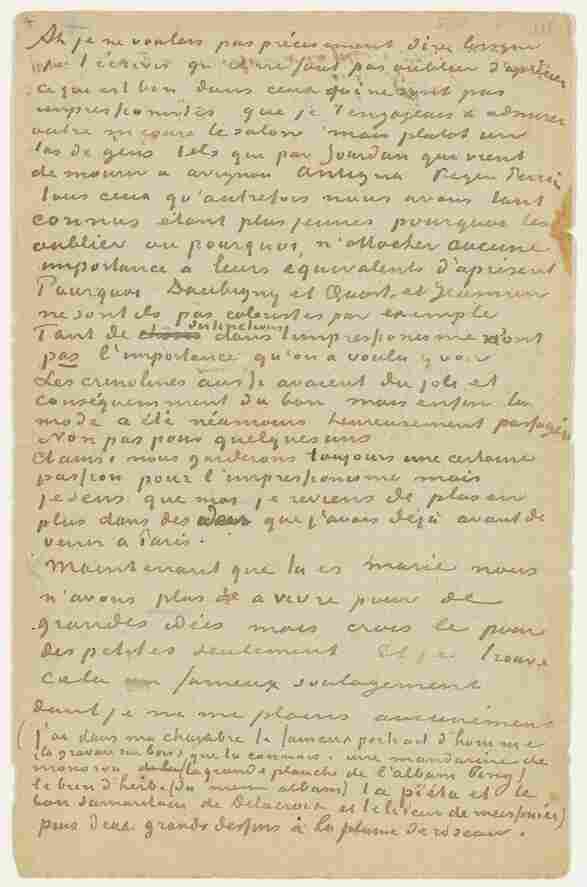 Ah je ne voulais pas précisément dire lorsque
je t'écrivis qu'il ne faut pas oublier d'apprécier
ce qui est bon dans ceux qui ne sont pas
impressionistes que je t'engageais à admirer
outre mesure le salon mais plutot un
tas de gens tels que par Jourdan qui vient
de mourir a avignon Antigna Feyen Perrin
tous ceux qu'autrefois nous avons tant
connus étant plus jeunes pourquoi les
oublier ou pourquoi n'attacher aucune
importance à leurs équivalents d'aprésent
Pourquoi Daubigny et Quost et Jeannin
ne sont ils pas coloristes par exemple
Tant de distinctions dans l'impressionisme n'ont
pas l'importance qu'on a voulu y voir
Les crinolines aussi avaient du joli et
conséquemment du bon mais enfin la
mode a été néamoins heureusement passagère
Non pas pour quelques uns
Et ainsi nous garderons toujours une certaine
passion pour l'impressionisme mais
je sens que moi je reviens de plus en
plus dans des idées que j'avais déjà avant de
venir a Paris.
Maintenant que tu es marié nous
n'avons plus a vivre pour de
grandes idées mais crois le pour
des petites seulement Et je trouve
cela un fameux soulagement
dont je ne me plains aucunement
(j'ai dans ma chambre le fameux portrait d'homme
(la gravure sur bois) que tu connais. une mandarine de
monorou (la grande planche de l'album Bing)
le brin d'herbe (du meme album) la Piéta et le
bon samaritain de Delacroix et le liseur de meissonier)
puis deux grands dessins à la plume de roseau.